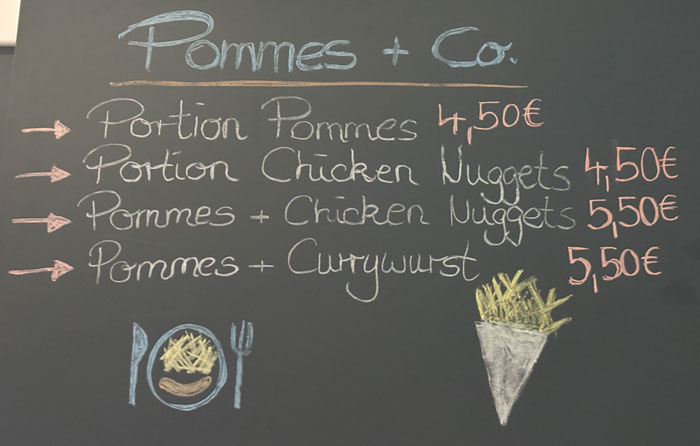 Pommes + Co.
→ Portion Pommes 4,50€
→ Portion Chicken Nuggets 4,50€
→ Pommes + Chicken Nuggets 5,50€
→ Pommes + Currywurst 5,50€